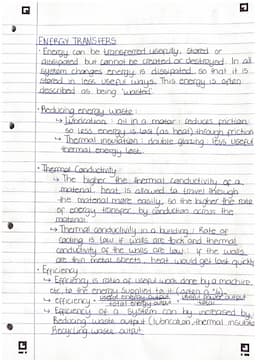 ENERGY TRANSFERS
· Energy can be transferred usefully, stored or
dissipated but cannot be created or destroyed. In all
system changes energy is dissipated, so that it is
stored in less useful ways. This energy is often
described as being 'wasted'
· Reducing energy waste:
↳ Lubrication: oil in a motor: reduces friction
so less energy is lost (as heat) through friction
↳ Thermal insulation: double glazing: less useful
thermal energy lost.
· Thermal Conductivity
↳ The higher the thermal conductivity of a
material, heat is allowed to travel through
the material more easily, so the higher the rate
of energy transfer by conduction across the
material.
↳ Thermal conductivity in a building: Rate of
cooling is low if walls are thick and thermal
conductivity of the walls are low. If the walls
are thin metal sheets, heat would get lost quickly
· Efficiency
↳ Efficiency is ratio of useful work done by a machine,
etc to the energy supplied to it (often a %).
↳ efficiency = useful energy output / total energy useful power output / total
↳ Efficiency of a system can be increased by
Reducing waste output (lubrication, thermal insulatio
Recycling waste output